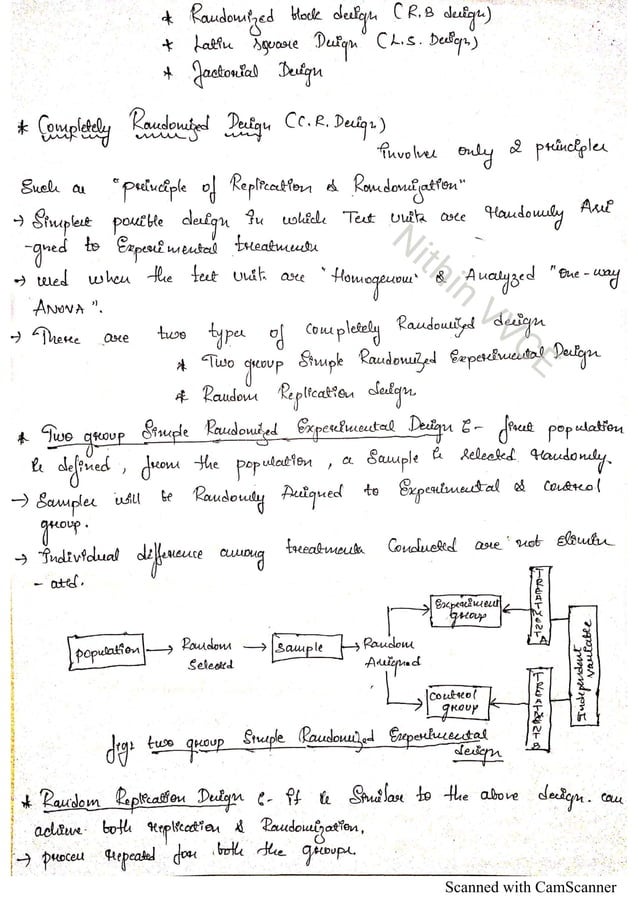 * Randomized block design (R.B design)
* Latin Square Design (L.S. Design)
* Factorial Design
* Completely Randomized Design (C.R. Design)
Involves only 2 principles
Such as "principle of Replication & Randomization"
→ Simplest possible design in which Test units are Randomly Assi
-gned to Experimental treatments
→ used when the test units are "Homogenous" & Analyzed "One-way
ANOVA".
→ There are two types of completely Randomized design
* Two group Simple Randomized Experimental Design
* Random Replication design
* Two group Simple Randomized Experimental Design :- first population
is defined, from the population, a Sample is selected Randomly.
→ Samples will be Randomly Assigned to Experimental & control
group.
→ Individual difference among treatments Conducted are not Elimin
-ated.
population → Random Selected → Sample → Random Assigned
Experiment group
control group
TREATMENT A
TREATMENT B
Independent variable
fig: two group Simple Randomized Experimental
design
* Random Replication Design :- it is Similar to the above design. can
achieve both replication & Randomization,
→ process repeated for both the groups.
Nithin VVCE
Scanned with CamScanner